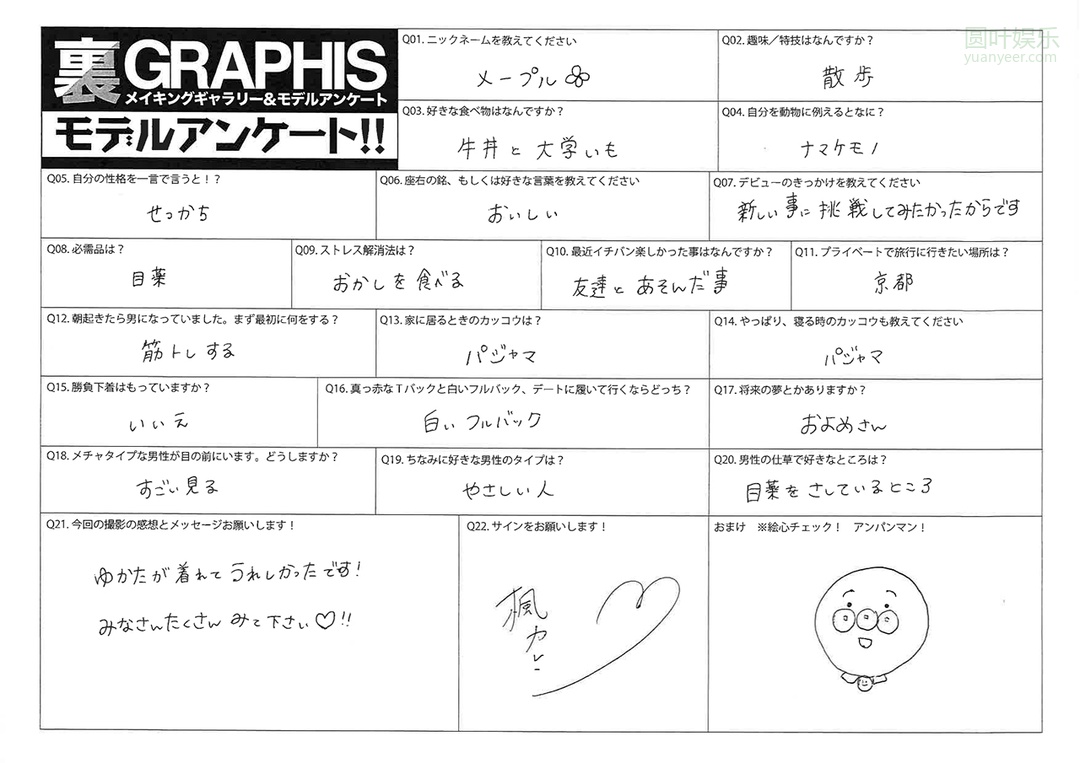 圆叶娱乐
yuanyeer.com
裏GRAPHIS
メイキングギャラリー&モデルアンケート
モデルアンケート!!
Q01. ニックネームを教えてください
メープル
Q02. 趣味／特技はなんですか？
散歩
Q03. 好きな食べ物はなんですか？
牛丼と大学いも
Q04. 自分を動物に例えるとなに？
ナマケモノ
Q05. 自分の性格を一言で言うと！？
せっかち
Q06. 座右の銘、もしくは好きな言葉を教えてください
おいしい
Q07. デビューのきっかけを教えてください
新しい事に挑戦してみたかったからです
Q08. 必需品は？
目薬
Q09. ストレス解消法は？
おかしを食べる
Q10. 最近イチバン楽しかった事はなんですか？
友達とあそんだ事
Q11. プライベートで旅行に行きたい場所は？
京都
Q12. 朝起きたら男になっていました。まず最初に何をする？
筋トレする
Q13. 家に居るときのカッコウは？
パジャマ
Q14. やっぱり、寝る時のカッコウも教えてください
パジャマ
Q15. 勝負下着はもっていますか？
いいえ
Q16. 真っ赤なTバックと白いフルバック、デートに履いて行くならどっち？
白いフルバック
Q17. 将来の夢とかありますか？
およめさん
Q18. メチャタイプな男性が目の前にいます。どうしますか？
すごい見る
Q19. ちなみに好きな男性のタイプは？
やさしい人
Q20. 男性の仕草で好きなところは？
目薬をさしているところ
Q21. 今回の撮影の感想とメッセージお願いします！
ゆかたが着れてうれしかったです!
みなさんたくさんみて下さい♡!!
Q22. サインをお願いします！
楓カレン
おまけ　※絵心チェック！　アンパンマン！